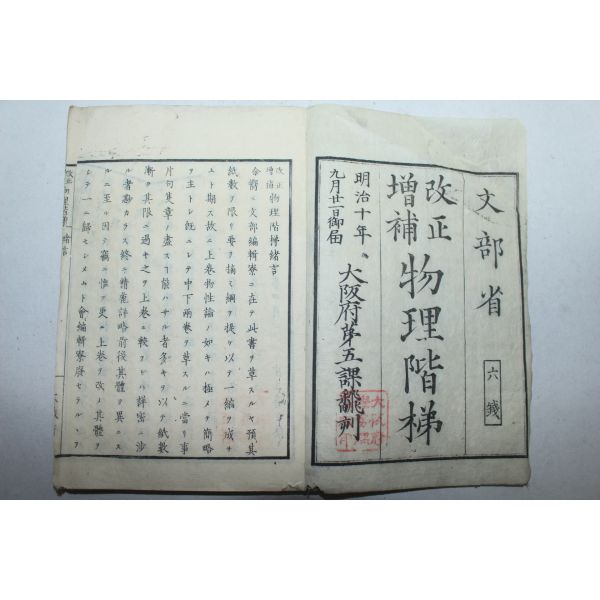 文部省
六錢
改正
增補
物理階梯
明治十年
九月廿一日御届
大阪府第五課飜刻
改正
增補
物理階梯緒言
余嚮ニ文部編輯寮ニ在テ此書ヲ草スルヤ預其
紙數ヲ限リ要ヲ摘ミ綱ヲ提ケ以テ一編ヲ成サ
ント期ス故ニ上卷物性論ノ如キハ極メテ簡略
ヲ主トシ既ニシテ中下兩卷ヲ草スルニ當リ事
片句隻章ノ盡ス能ハサル者多キヲ以テ紙數
漸ク其限ニ過キ之ヲ上卷ニ較フレハ詳密ニ涉
ル者尠カラス終ニ精麄詳略前後其體ヲ異ニス
ルニ至ル因テ竊ニ惟フ更ニ上卷ヲ改メ其體ヲ
シテ一ニ歸セシメムト會編輯寮廢セラル、ヲ